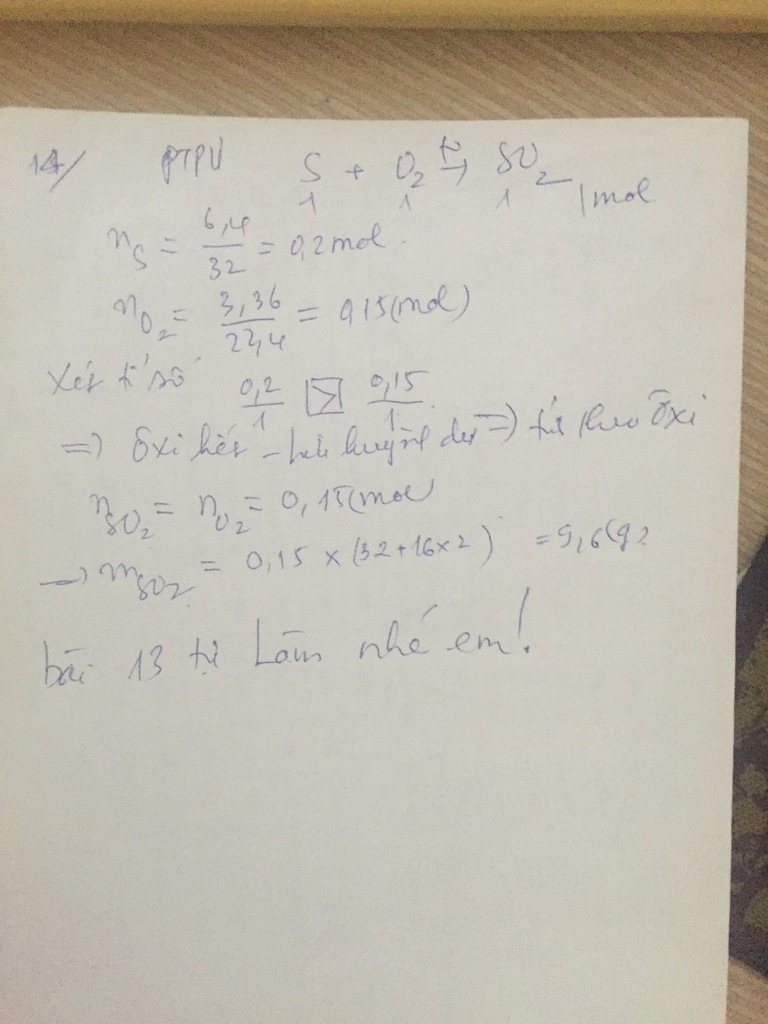 14/ PTPƯ S + O₂ t°→ SO₂
1 1 1 /mol
n_S = 6,4/32 = 0,2 mol.
n_O₂ = 3,36/22,4 = 0,15 (mol)
Xét tỉ số 0,2/1 > 0,15/1
=> Ôxi hết - lưu huỳnh dư => tính theo Ôxi
n_SO₂ = n_O₂ = 0,15 (mol)
→ m_SO₂ = 0,15 x (32+16x2) = 9,6 (g)
bài 13 tự Làm nhé em!